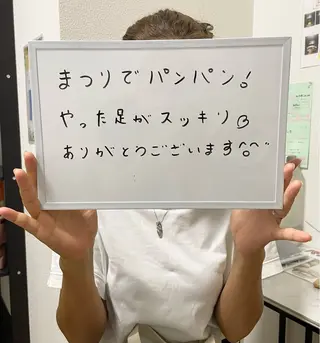 まつりでパンパン!
やった足がスッキリ
ありがとうございます^○^